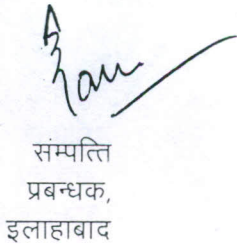 सम्पत्ति
प्रबन्धक,
इलाहाबाद